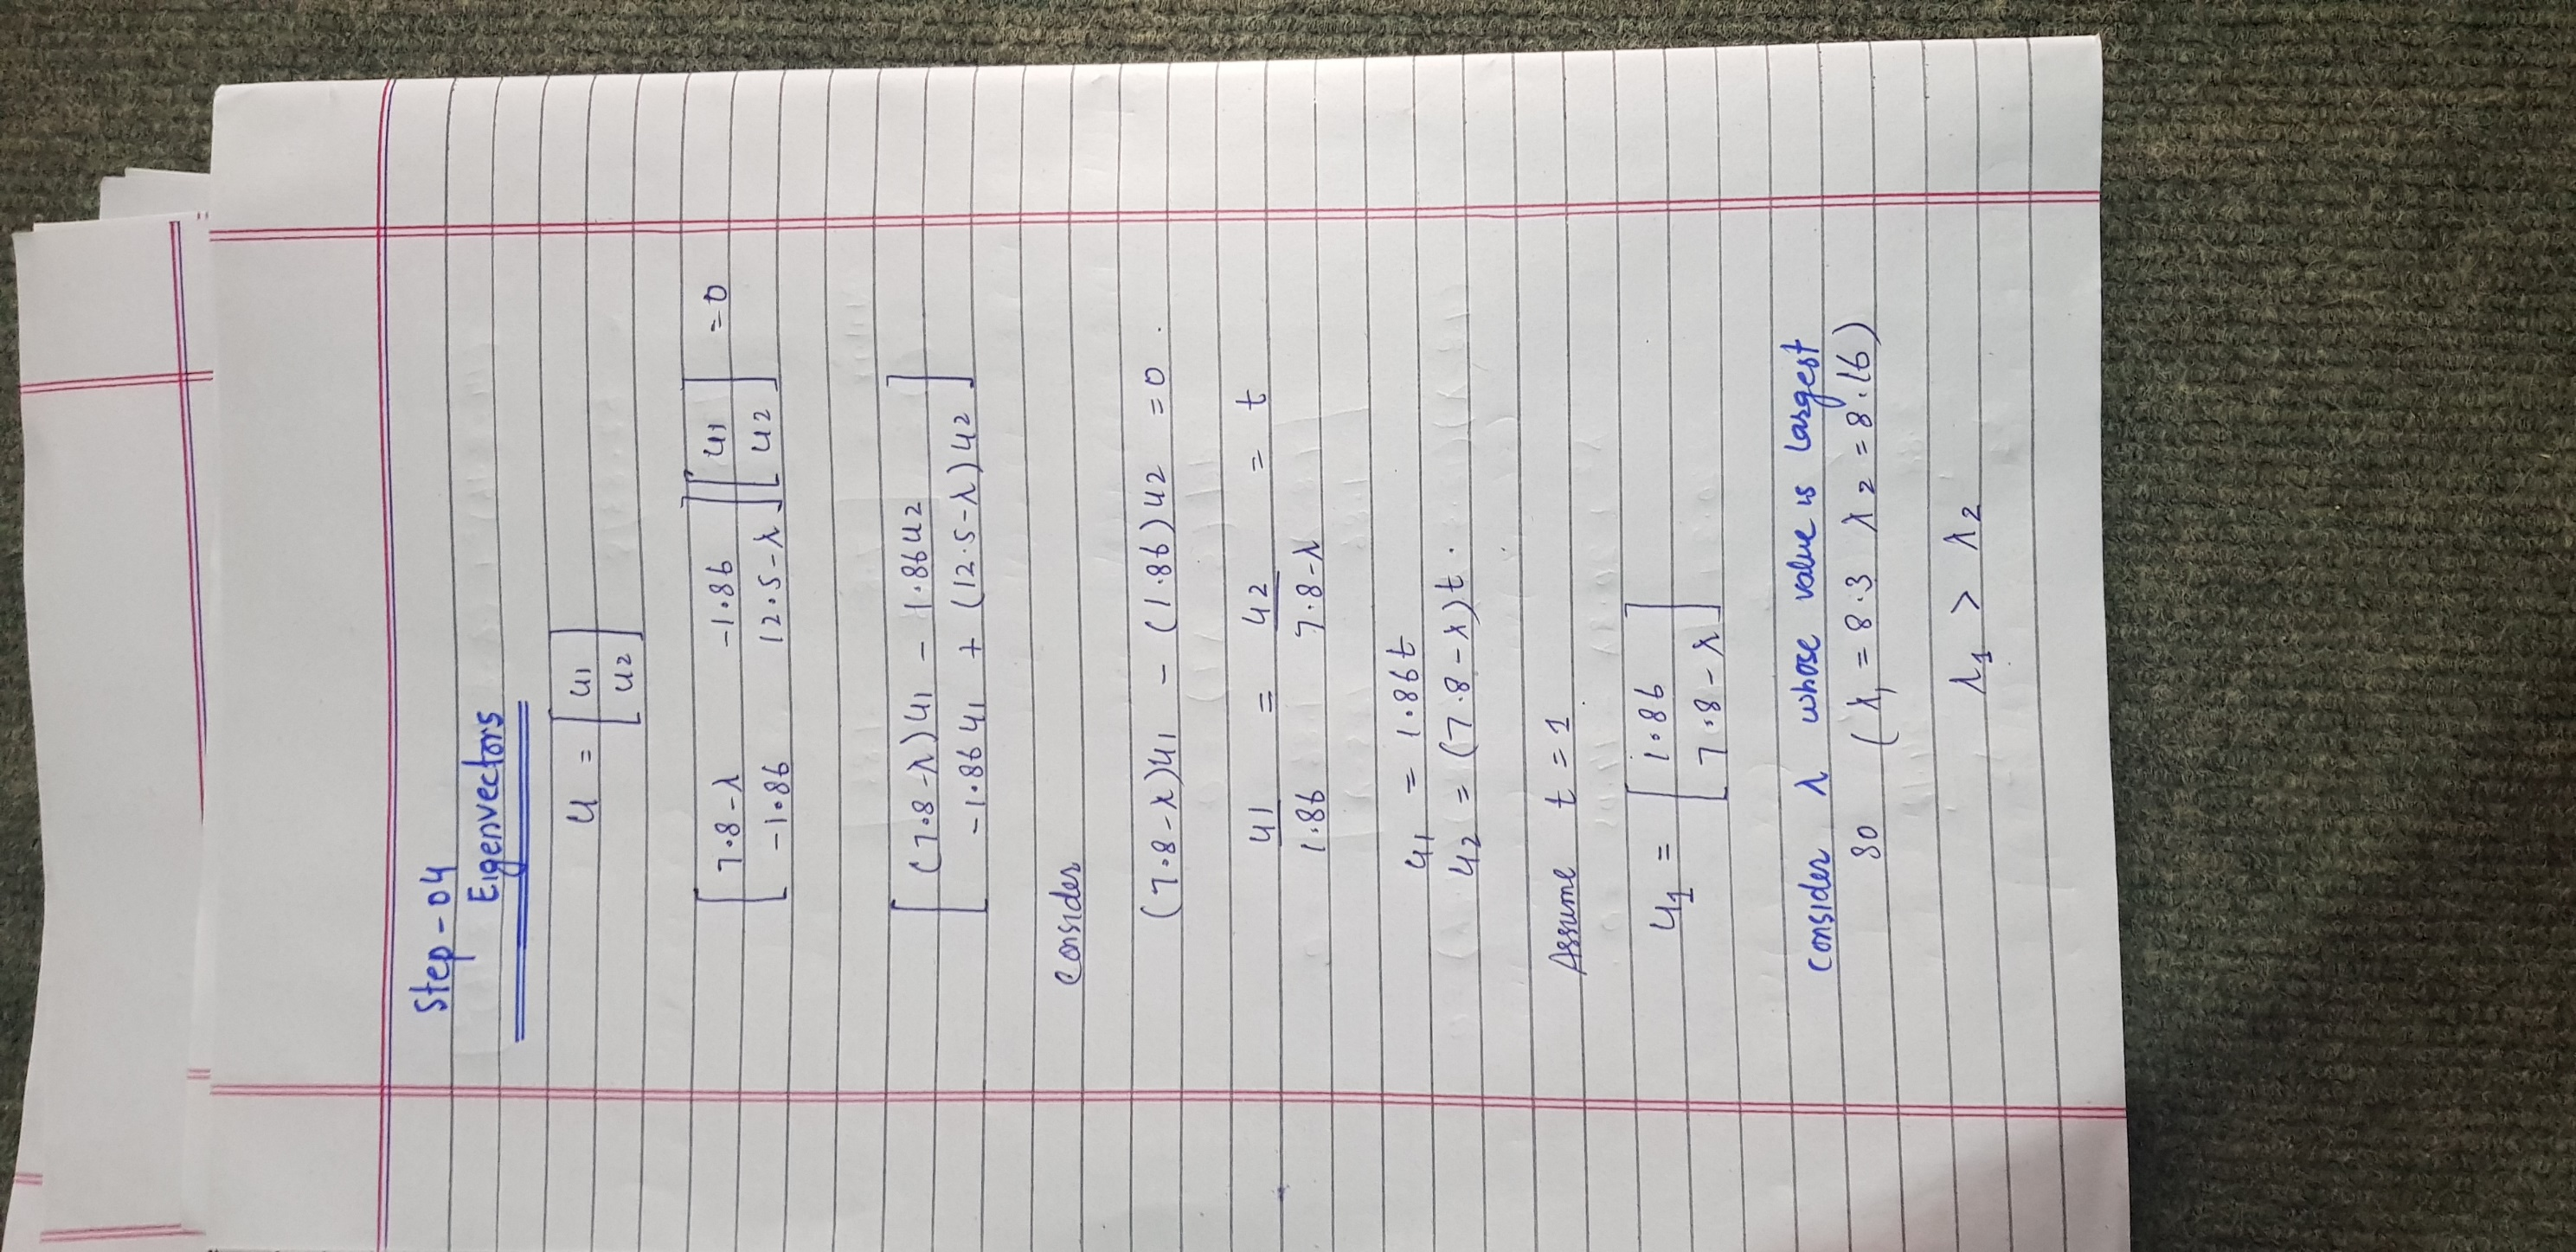 Step-04
Eigenvectors
u = [u1
u2]
[7.8-λ -1.86] [u1] =0
[-1.86 12.5-λ] [u2]
[(7.8-λ)u1 - 1.86u2]
[-1.86u1 + (12.5-λ)u2]
Consider
(7.8-λ)u1 - (1.86)u2 =0.
u1/1.86 = u2/7.8-λ = t
u1 = 1.86t
u2 = (7.8-λ)t.
Assume t=1
u1 = [1.86
7.8-λ]
Consider λ whose value is largest
so (λ1 = 8.3 λ2 = 8.16)
λ1 > λ2